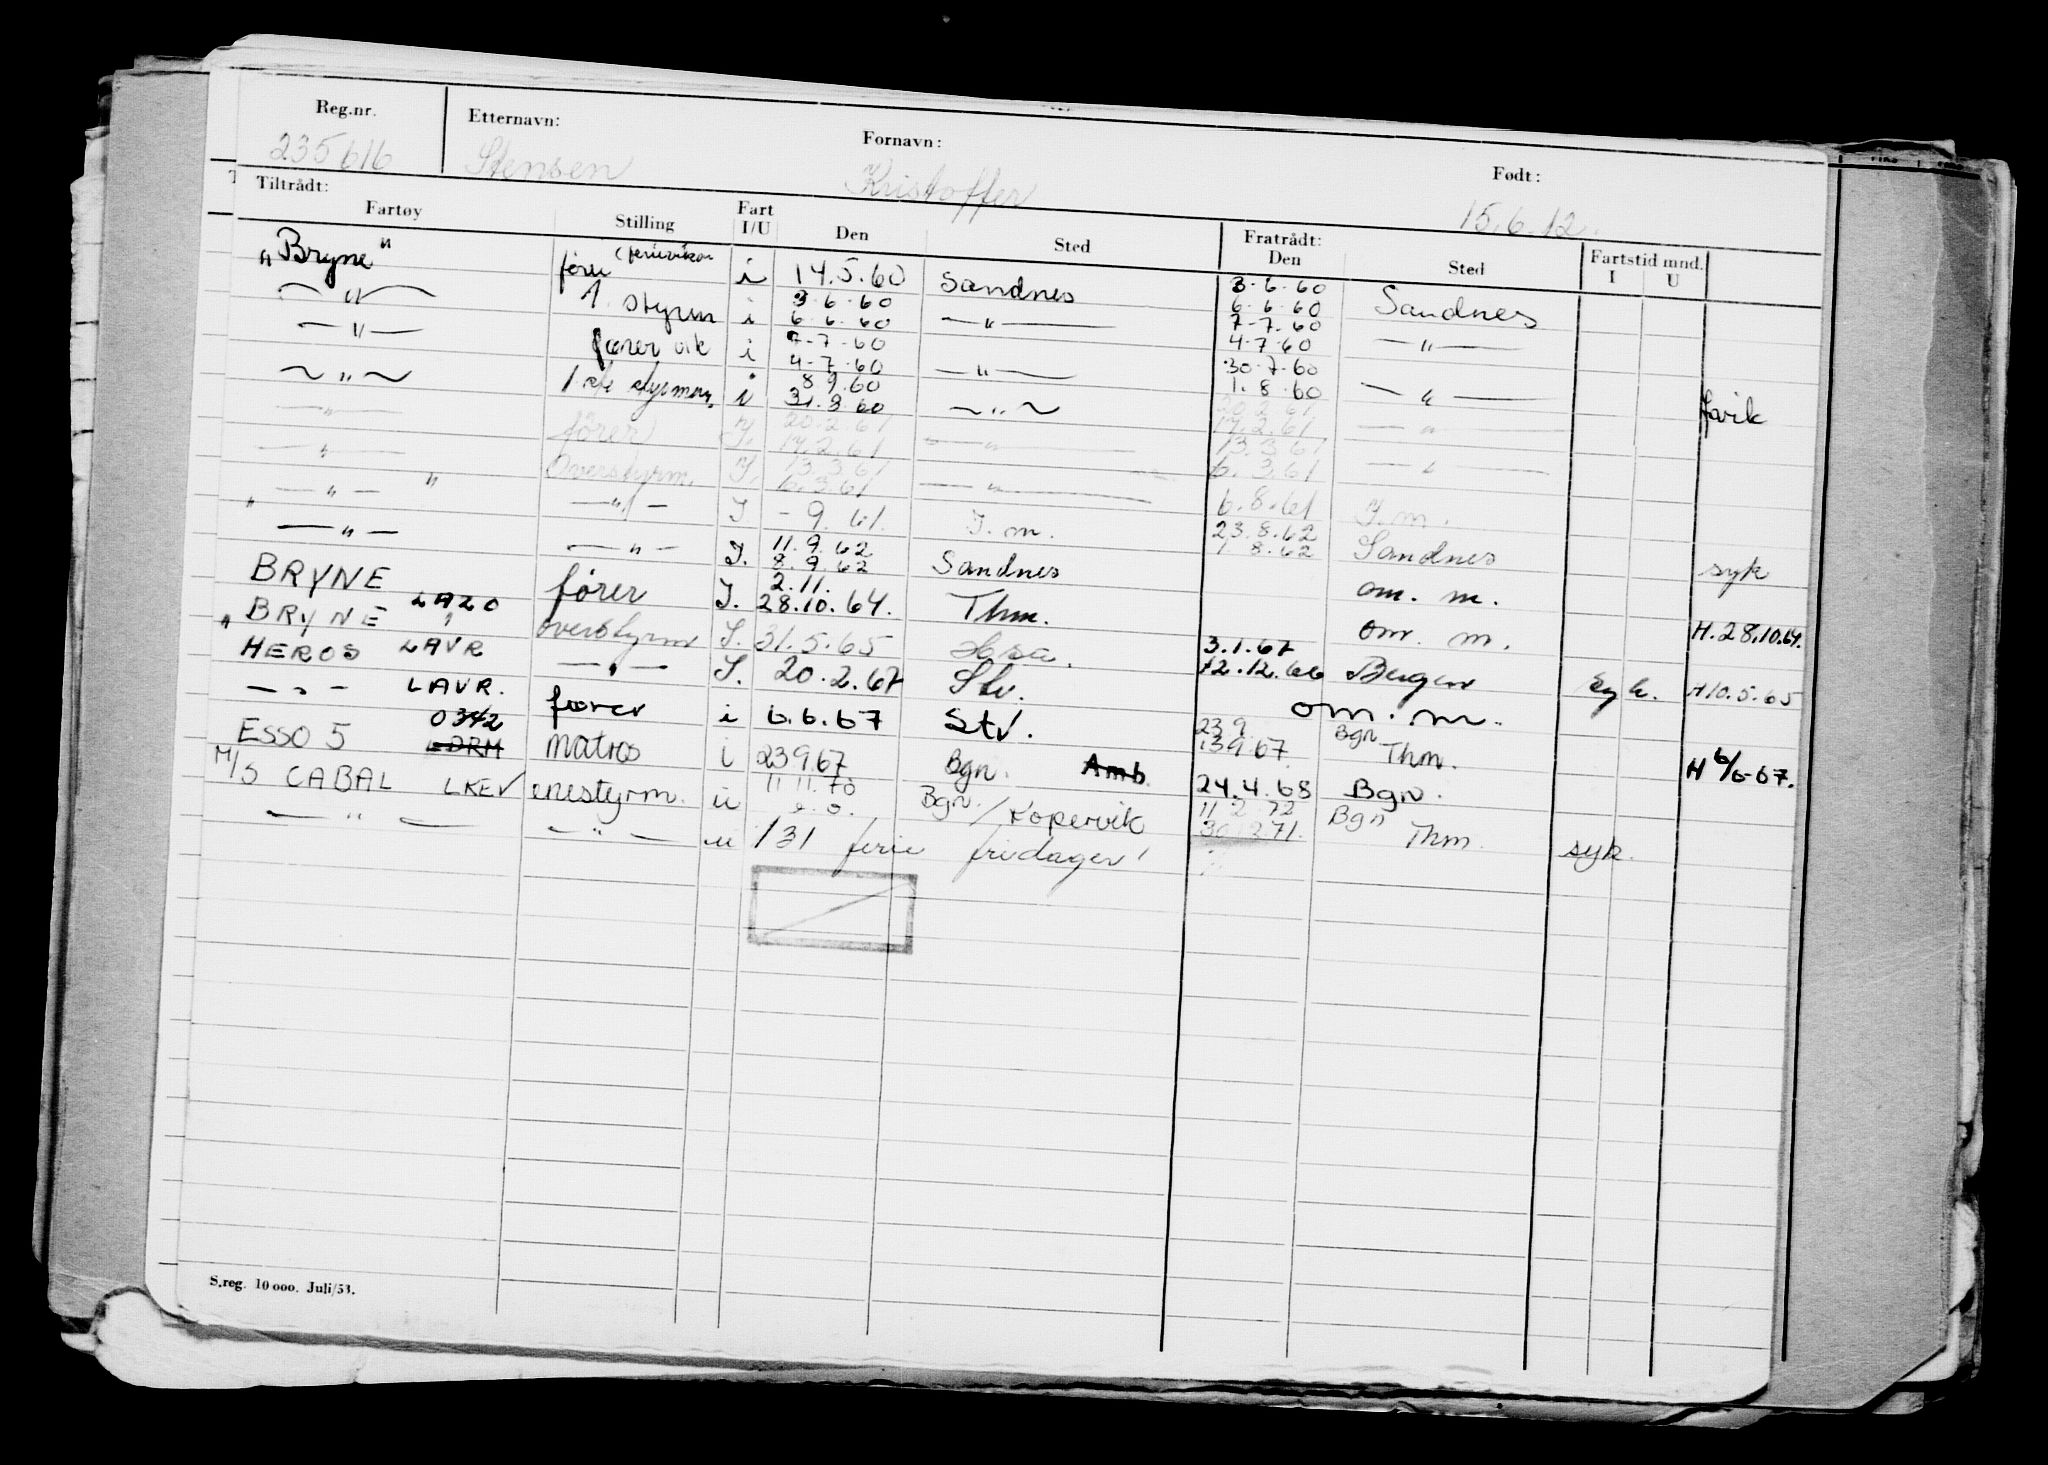 Reg.nr. Etternavn: Fornavn: Født:
235616 Stensen Kristoffer 15.6.12.
Tiltrådt: Fratrådt:
Fartøy Stilling Fart I/U Den Sted Den Sted Fartstid mnd. I U
"Bryne" fører (ferievikar i 14.5.60 Sandnes 3.6.60 Sandnes
— " — 1. styrm i 3.6.60 6.6.60 — " — 6.6.60 7-7.60 — " —
— " — fører vik i 7-7-60 4-7-60 — " — 4-7-60 30-7-60 — " —
~ " ~ 1ste styrman, i 8 9.60 31.8 60 ~ " ~ 1.8.60 favik
— " — fører I. 20.2.61 17.2.61 — " — 20.2.61 17.2.61 — " —
— " — Overstyrm. I. 13.3.61 6.3.61 — " — 13.3.61 6.3.61 — " —
— " — " — " — I - 9.61. I.m. 6.8.61 I.m.
" — " — — " — I. 11.9.62 8.9.62 Sandnes 23.8.62 1.8.62 Sandnes syk
BRYNE fører I. 2.11. 28.10.64. Thm. om. m.
" BRYNE " LAZO overstyrm I. 31.5.65 Hsa. om. m. H.28.10.64.
HEROS LAVR — " — I. 20.2.67 Stv. 3.1.67 12.12.66 Bergen syk. H10.5.65
— " — LAVR. fører i 6.6.67 Stv. om. m.
ESSO 5 0342 LDRM matros i 23967 Bgn. Amb 23 9. 13967. Bgn Thm. H 6/6-67.
M/S CABAL LKEV enestyrm. u 11 11.70 Bgn./Kopervik 24.4.68 Bgn.
— " — — " — u 131 ferie fridager! 11 2 72 30 1271. Bgn Thm. syk.
S.reg. 10 000. Juli/53.